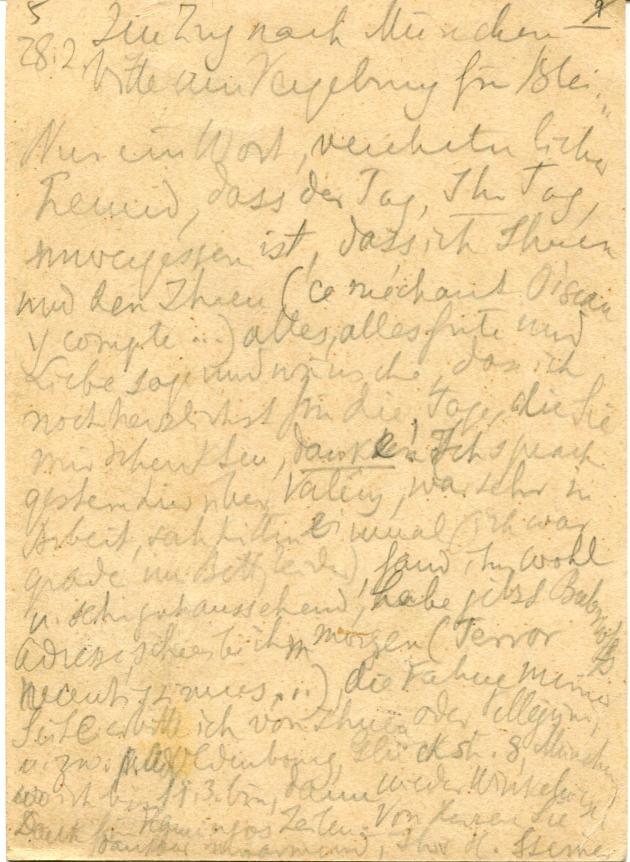 28.2. Im Zug nach München
Bitte um Vergebung für Blei.
Nur ein Wort, verehrter lieber
Freund, dass der Tag, Ihr Tag,
unvergessen ist, dass ich Ihnen
und den Ihren (ce méchant Oiseau
y compte ...) alles, alles Gute und
Liebe sage und wünsche, dass ich
noch herzlichst für die Tage, die Sie
mir schenkten, danke! Ich sprach
gestern hier über Valéry, war sehr in
Arbeit, sah einmal (ich war
grade im Bett, leider) fand ihn wohl
u. sehr gut aussehend, habe jetzt
Adresse, schreibe ihm morgen (Terror
...) die Fahne meiner
erbitte ich von Ihnen oder Pellegrini,
u. zw. Oldenbourg, Glückstr. 8, München
wo ich bis 14.3. bin, dann wieder
Dank Zeilen. Von Herzen Sie
dankbar umarmend, Ihr